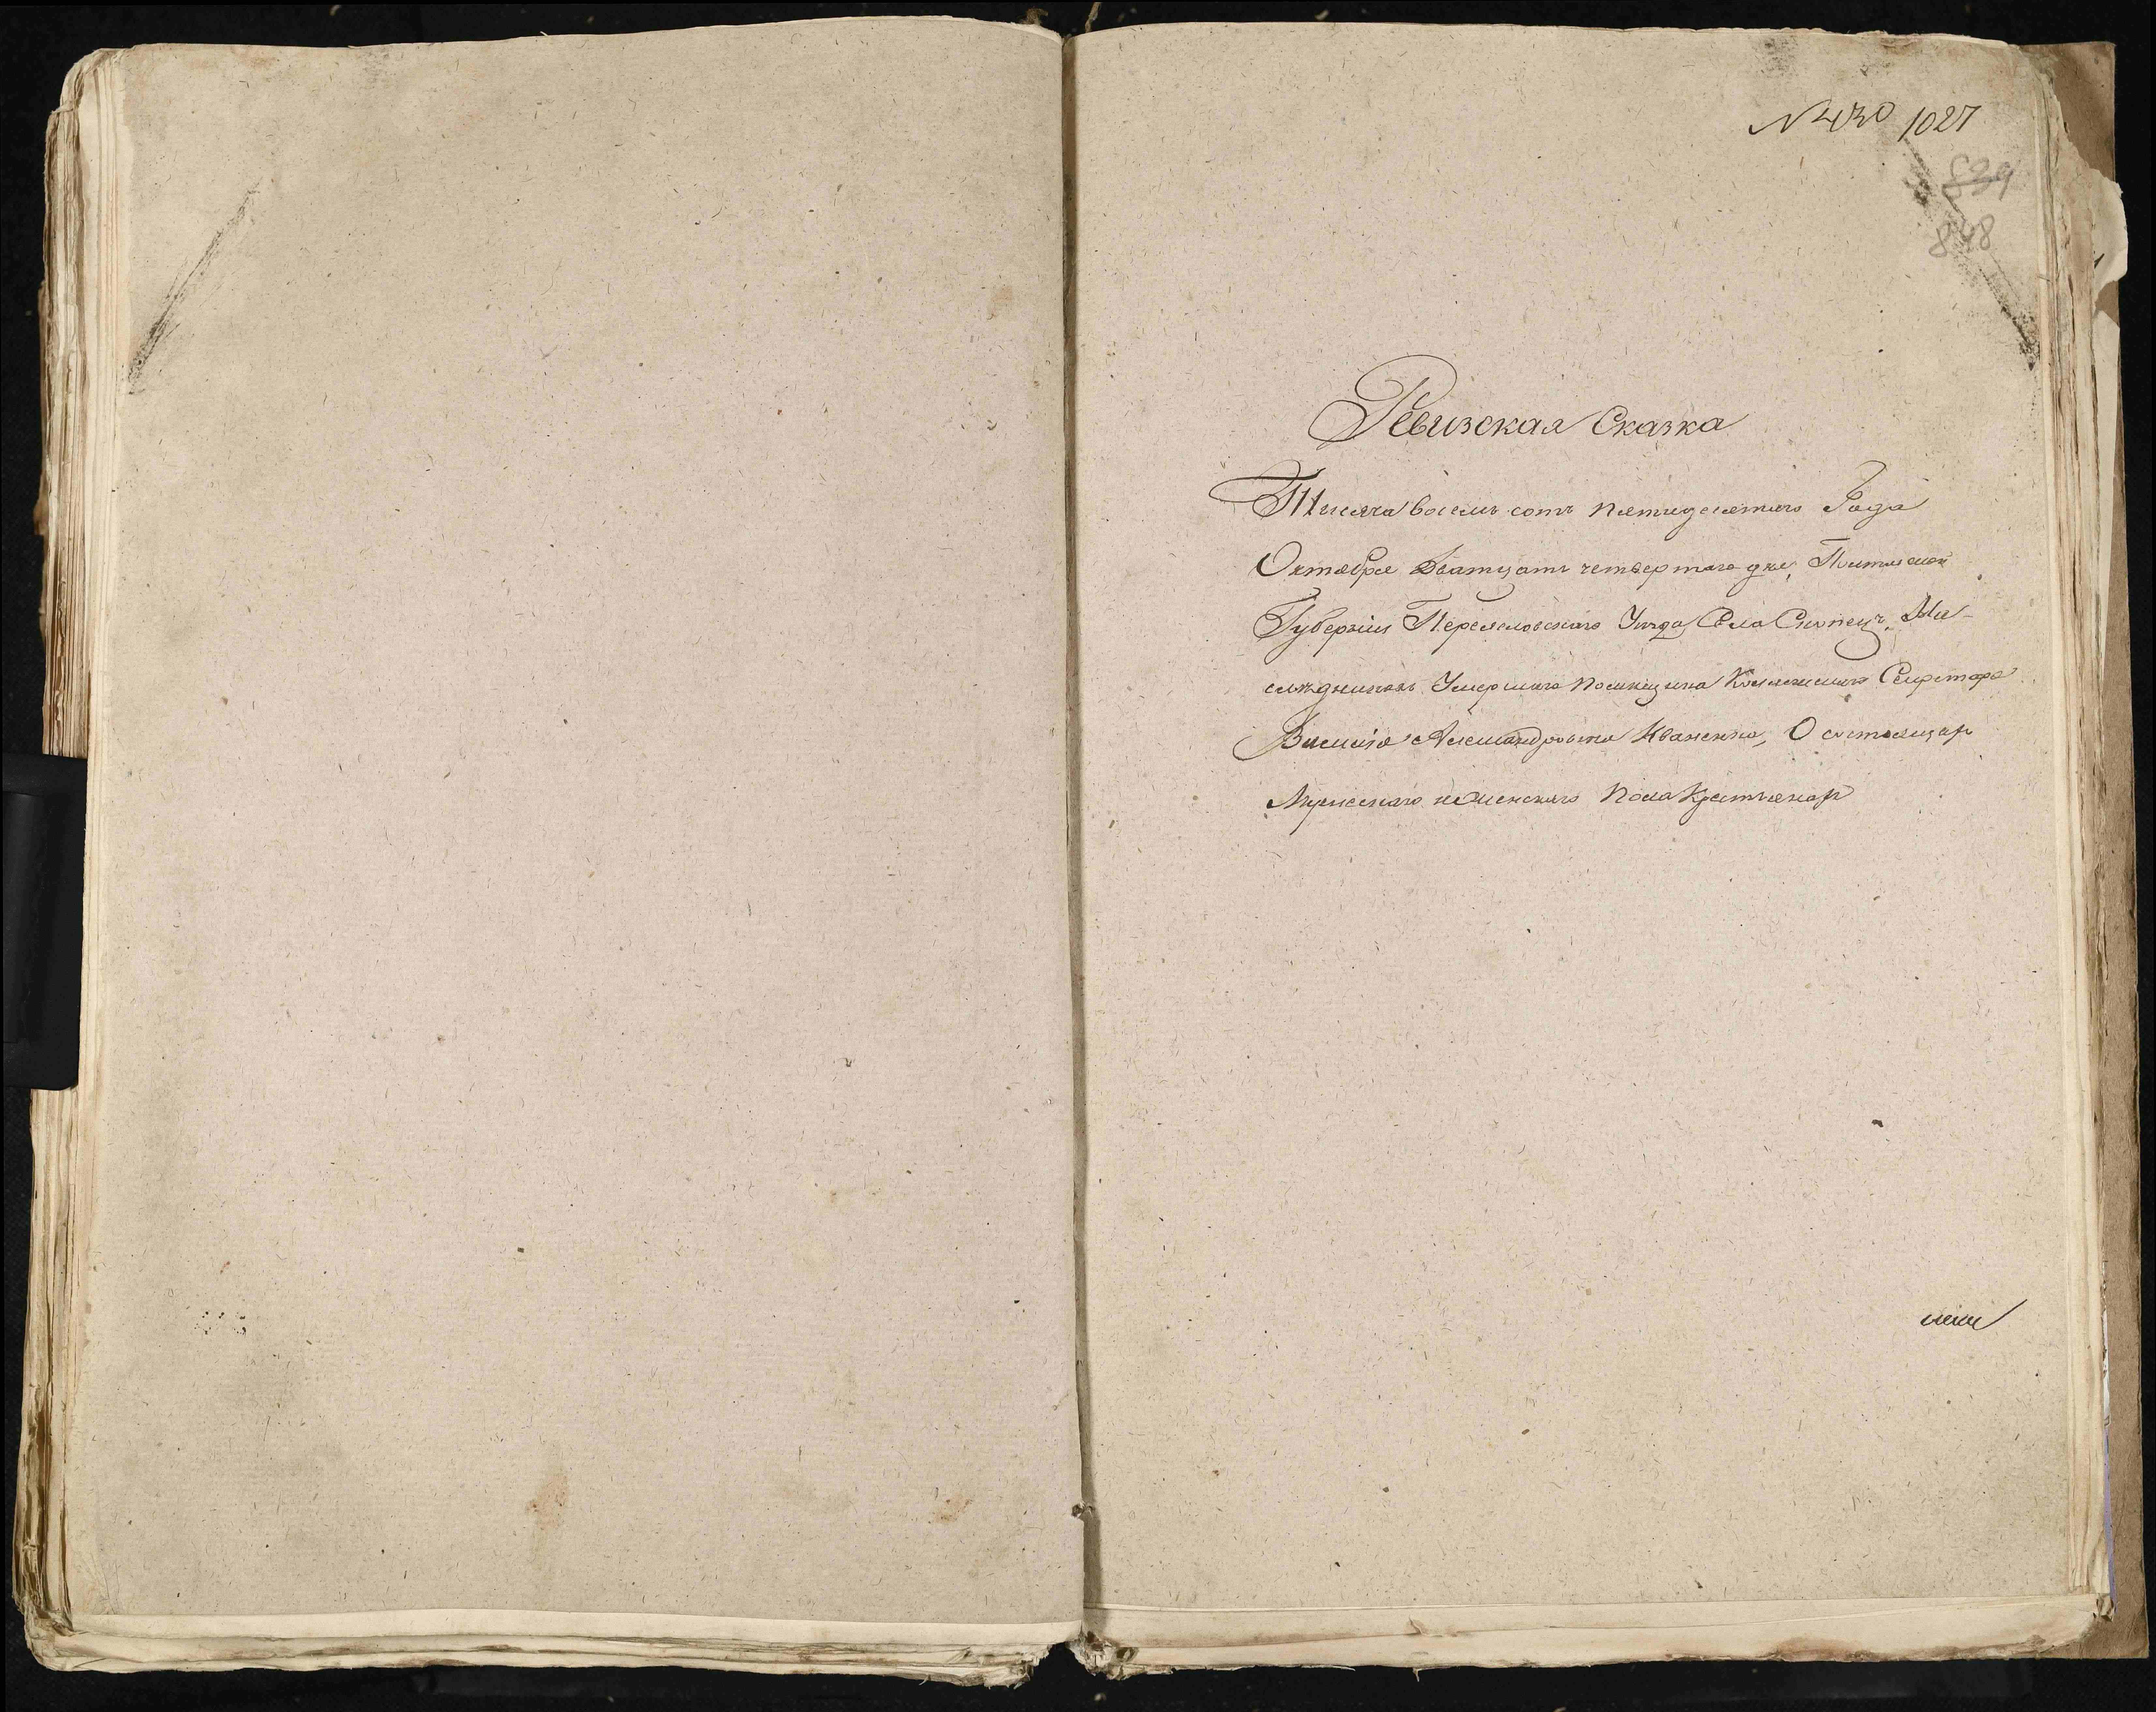 № 430 1027
839
848
Ревизская Сказка
Тысяча восемь сотъ пятидесятаго Года
Октября Дватцать четвертаго дня, Полтавской
Губерніи Переяславскаго Уѣзда Села Скопецъ, На-
слѣдниковъ Умершаго помѣщика Коллежскаго Секретаря
Василія Александровича О состоящихъ
Мужескаго и женскаго пола Крестьянахъ